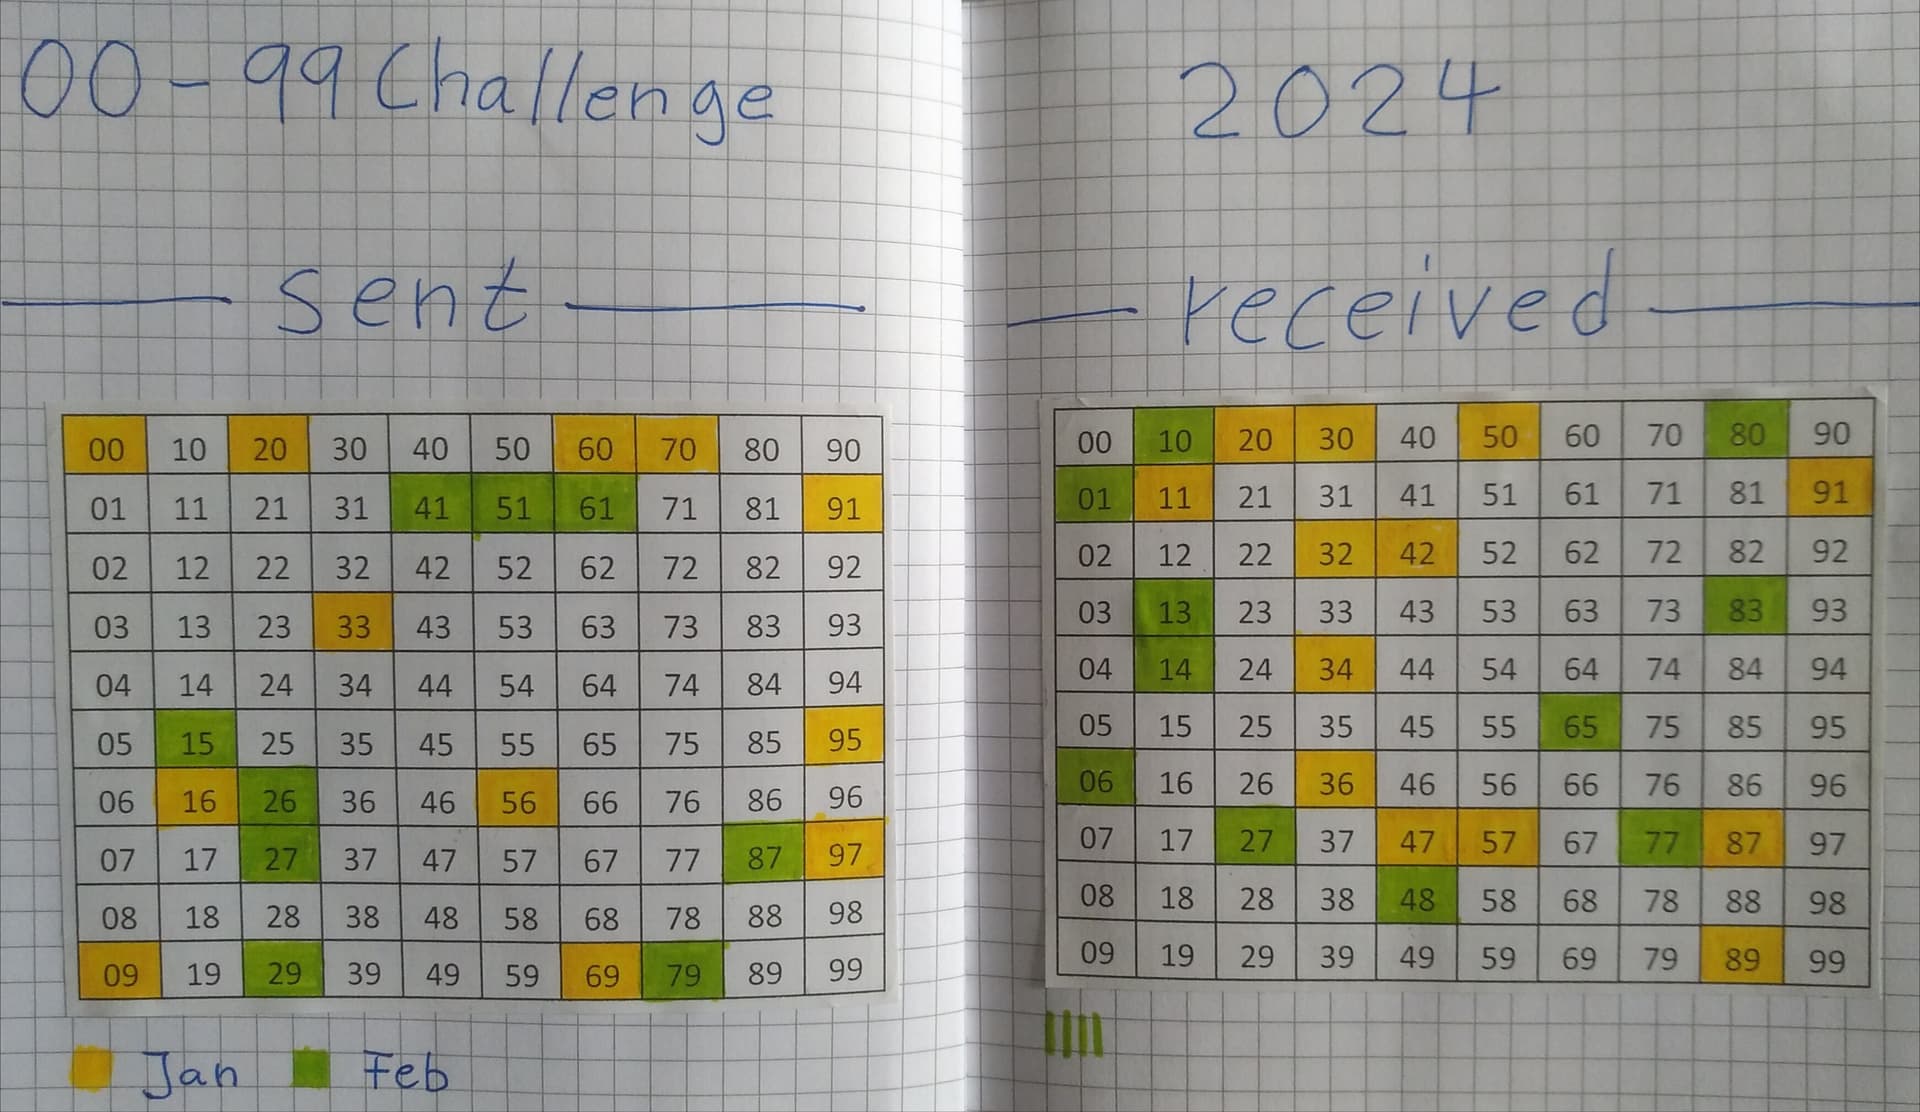 00-99 Challenge
sent
00 10 20 30 40 50 60 70 80 90
01 11 21 31 41 51 61 71 81 91
02 12 22 32 42 52 62 72 82 92
03 13 23 33 43 53 63 73 83 93
04 14 24 34 44 54 64 74 84 94
05 15 25 35 45 55 65 75 85 95
06 16 26 36 46 56 66 76 86 96
07 17 27 37 47 57 67 77 87 97
08 18 28 38 48 58 68 78 88 98
09 19 29 39 49 59 69 79 89 99
Jan Feb
2024
received
00 10 20 30 40 50 60 70 80 90
01 11 21 31 41 51 61 71 81 91
02 12 22 32 42 52 62 72 82 92
03 13 23 33 43 53 63 73 83 93
04 14 24 34 44 54 64 74 84 94
05 15 25 35 45 55 65 75 85 95
06 16 26 36 46 56 66 76 86 96
07 17 27 37 47 57 67 77 87 97
08 18 28 38 48 58 68 78 88 98
09 19 29 39 49 59 69 79 89 99